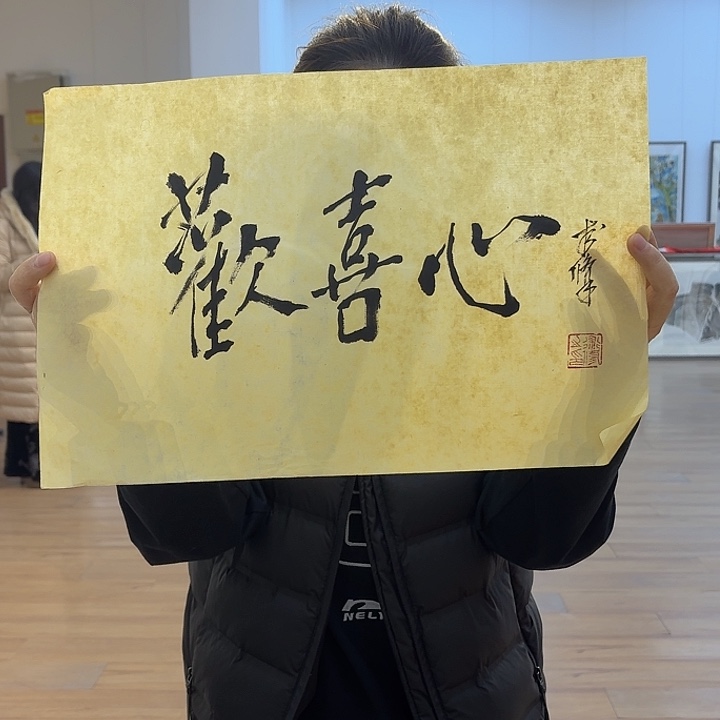 歡喜心
NELY